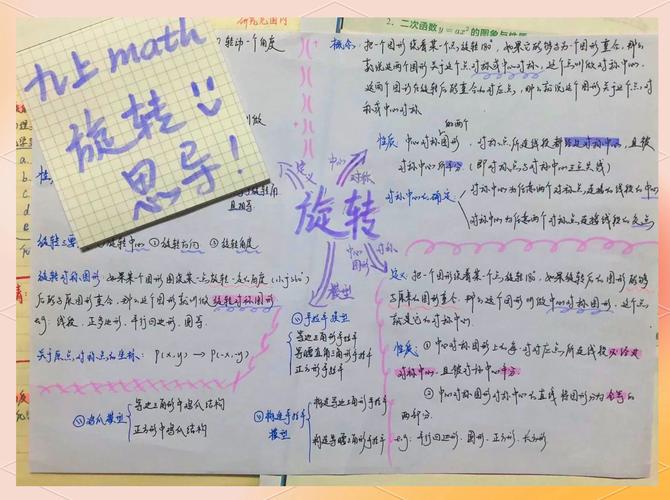 2. 二次函数 y = ax² 的图象与性质
九上 math
旋转
思导!
转动一个角度
概念: 把一个图形绕着某一个点旋转180°, 如果它能够与另一个图形重合, 那么
就说这两个图形关于这个点对称或中心对称, 这个点叫做对称中心.
这两个图形在旋转后能重合的对应点, 那么就说这个图形关于这个点对
称或中心对称.
性质: 中心对称的两个图形, 对称点所连线段都经过对称中心, 且被
对称中心所平分 (即对称点与对称中心三点共线)
对称中心的确定
对称中心为任意两个对称点连接的线段的中点
对称中心为任意两个对称点连接线段的交点
定义
中心对称
旋转
中心对称图形
模型
旋转三要素: ①旋转中心 ②旋转方向 ③旋转角度
旋转对称图形: 如果某个图形围绕某一点旋转一定的角度(小于360°)
后能与原图形重合, 那么这个图形就叫做旋转对称图形
e.g. 线段、正多边形、平行四边形、圆等.
关于原点对称点的坐标: P(x,y) → P(-x,-y)
定义: 把一个图形绕着某一个点旋转180°, 如果旋转后的图形能够
与原来的图形重合, 那么这个图形叫做中心对称图形, 这个点
就是它的对称中心.
性质: ① 中心对称图形上的每一对对应点所连线段必经过
对称中心, 且被对称中心平分.
② 中心对称图形对称中心的直线将图形分为全等的
两部分.
e.g. 平行四边形、圆形、正方形、长方形
⑴ 手拉手模型
等边三角形手拉手
等腰直角三角形手拉手
正方形手拉手
⑶ 鸡爪模型
等边三角形中鸡爪结构
正方形中鸡爪结构
构造手拉手模型
构造等边三角形手拉手
构造等腰三角形手拉手